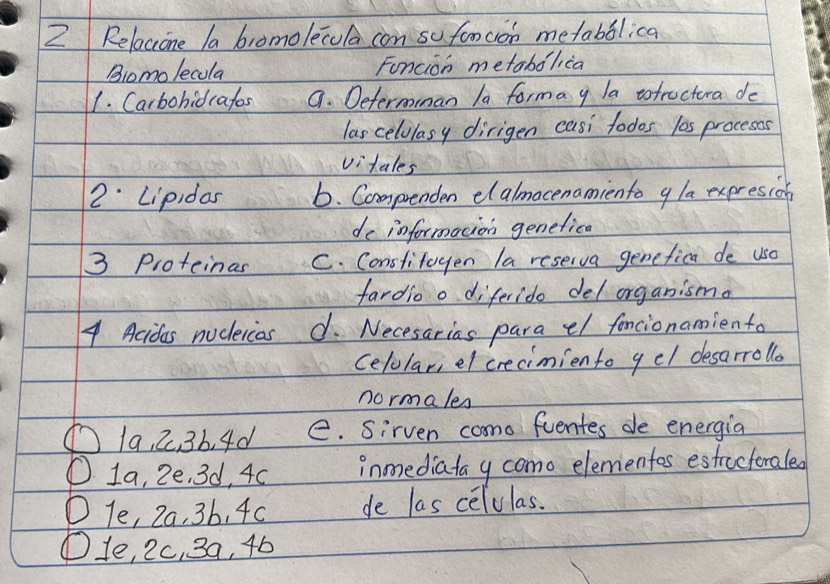 2 Relacione la biomolécula con su función metabólica
Biomolecula Función metabólica
1. Carbohidratos a. Determinan la forma y la estructura de
las celulas y dirigen casi todos los procesos
vitales
2. Lipidos b. Comprenden el almacenamiento y la expresión
de información genetica
3 Proteinas c. Constituyen la reserva genetica de uso
tardio o diferido del organismo
4 Acidos nucleicos d. Necesarias para el funcionamiento
celular, el crecimiento y el desarrollo
normales
1a, 2c, 3b, 4d e. Sirven como fuentes de energia
1a, 2e, 3d, 4c inmediata y como elementos estructurales
1e, 2a, 3b, 4c de las células.
1e, 2c, 3a, 4b